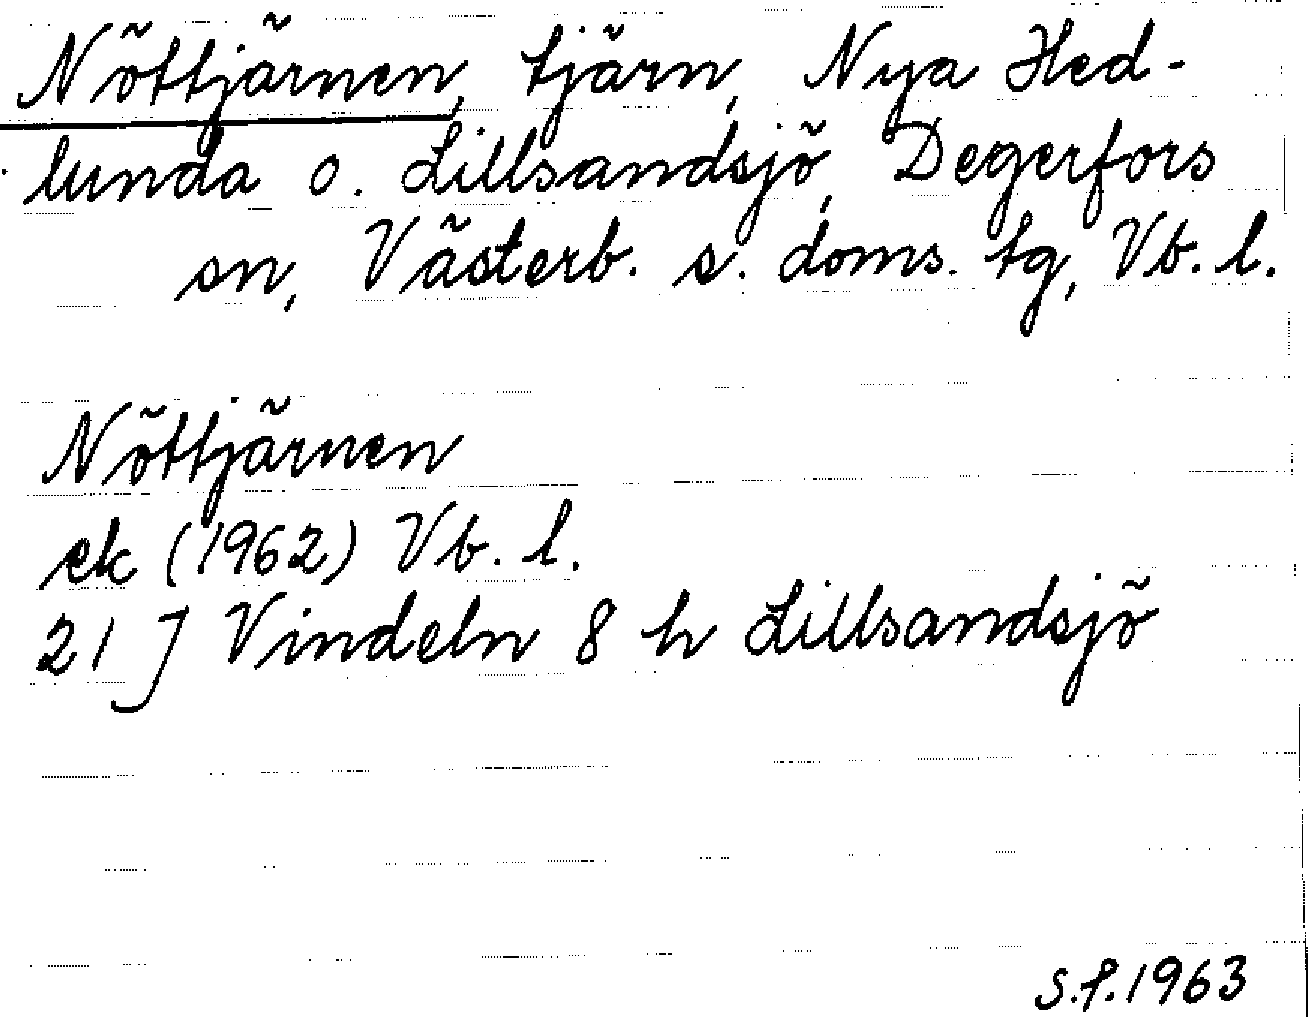 Nöttjärnen, tjärn, Nya Hed-
lunda o. Lillsandsjö, Degerfors
sn, Västerb. s. doms. tg, Vb. l.
Nöttjärnen
ek (1962) Vb. l.
21 J Vindeln 8 h Lillsandsjö
S.f. 1963